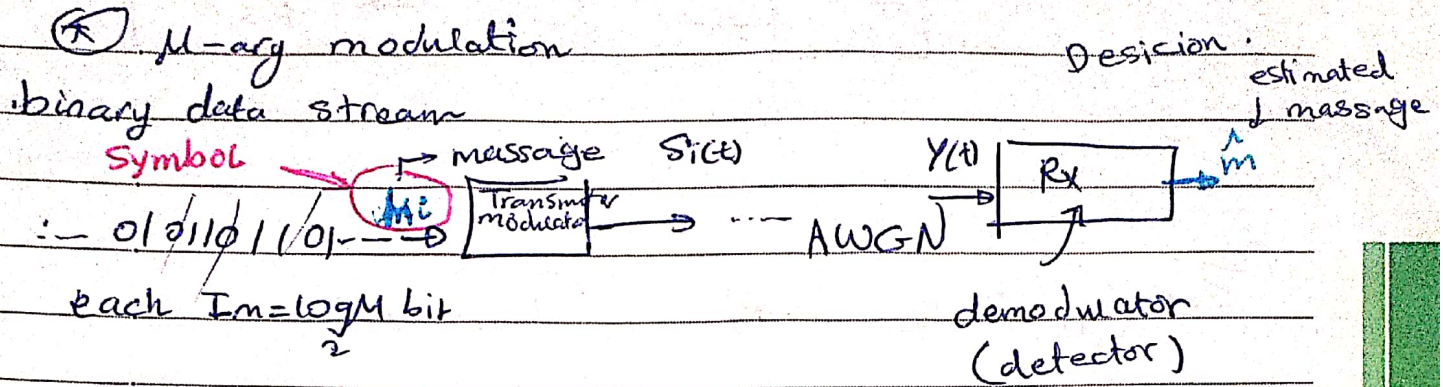 * M-ary modulation
Desicion.
estimated
massage
binary data stream
Symbol
massage Si(t) Y(t) Rx m̂
Mi Transmiter
modulator
:- 0101101101--- ---- AWGN
each Im=log₂M bit
demodulator
(detector)